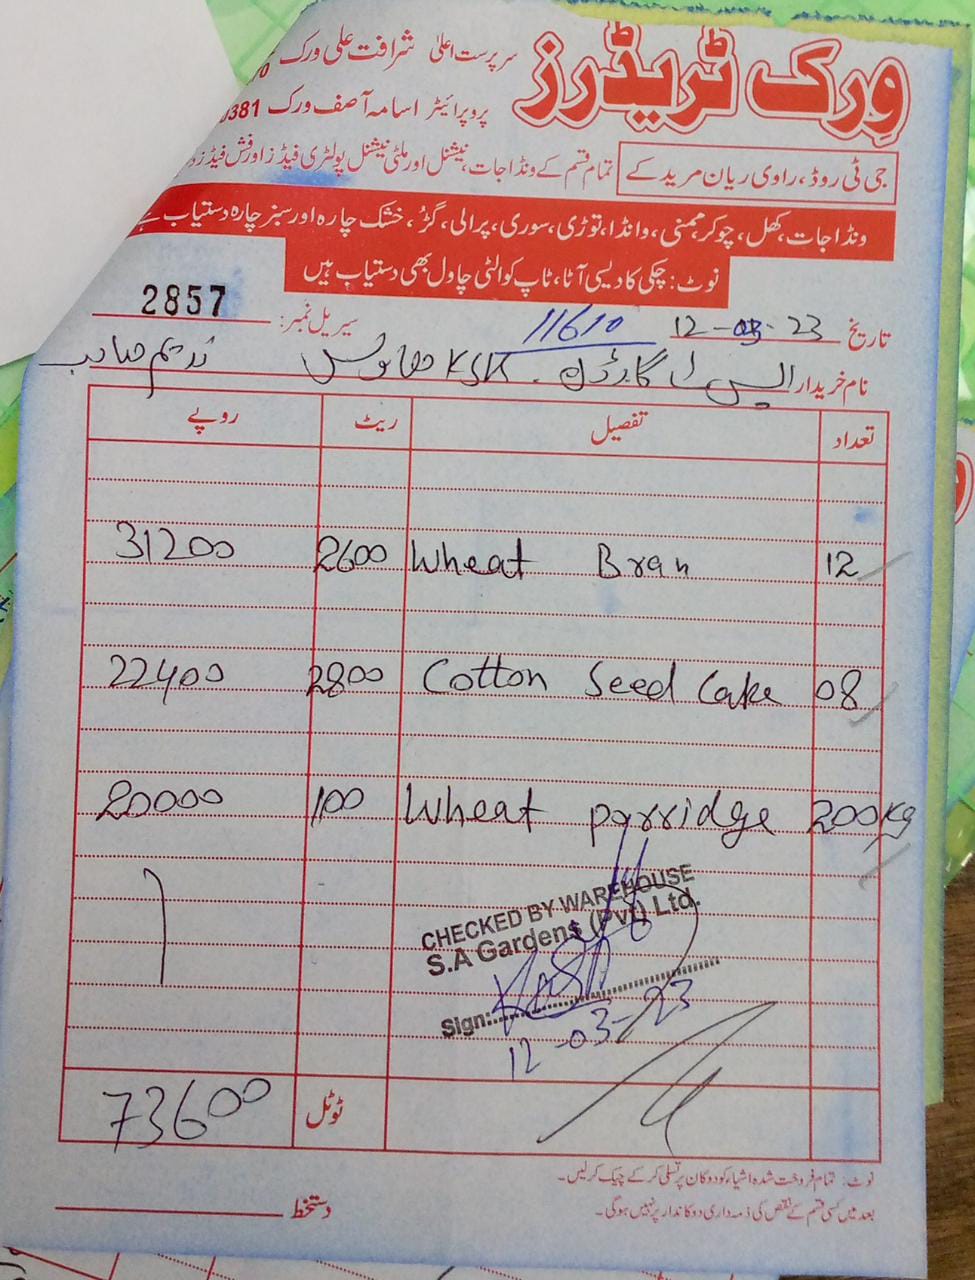 ورک ٹریڈرز
سرپرست اعلیٰ شرافت علی ورک
پروپرائیٹر اسامہ آصف ورک 0381
جی ٹی روڈ، راوی ریان مریدکے تمام قسم کے ونڈا جات، نیشنل اور ملٹی نیشنل پولٹری فیڈز اور فش فیڈز
ونڈا جات، کھل، چوکر، وانڈا، توڑی، سوری، پرالی، گڑ، خشک چارہ اور سبز چارہ دستیاب ہے
نوٹ: چکی کا دیسی آٹا، ٹاپ کوالٹی چاول بھی دستیاب ہیں
تاریخ 12-03-23 11610 سیریل نمبر: 2857
نام خریدار ایس اے گارڈن KSK ندیم صاحب
تعداد تفصیل ریٹ روپے
12 Wheat Bran 2600 31200
08 Cotton Seed Cake 2800 22400
200kg Wheat porridge 100 20000
CHECKED BY WAREHOUSE
S.A Gardens (Pvt) Ltd.
Sign:
12-03-23
ٹوٹل 73600
نوٹ: تمام فروخت شدہ اشیاء کو دوکان پر تسلی کر کے چیک کر لیں۔
بعد میں کسی قسم کے نقص کی ذمہ داری دوکاندار پر نہیں ہوگی۔
دستخط